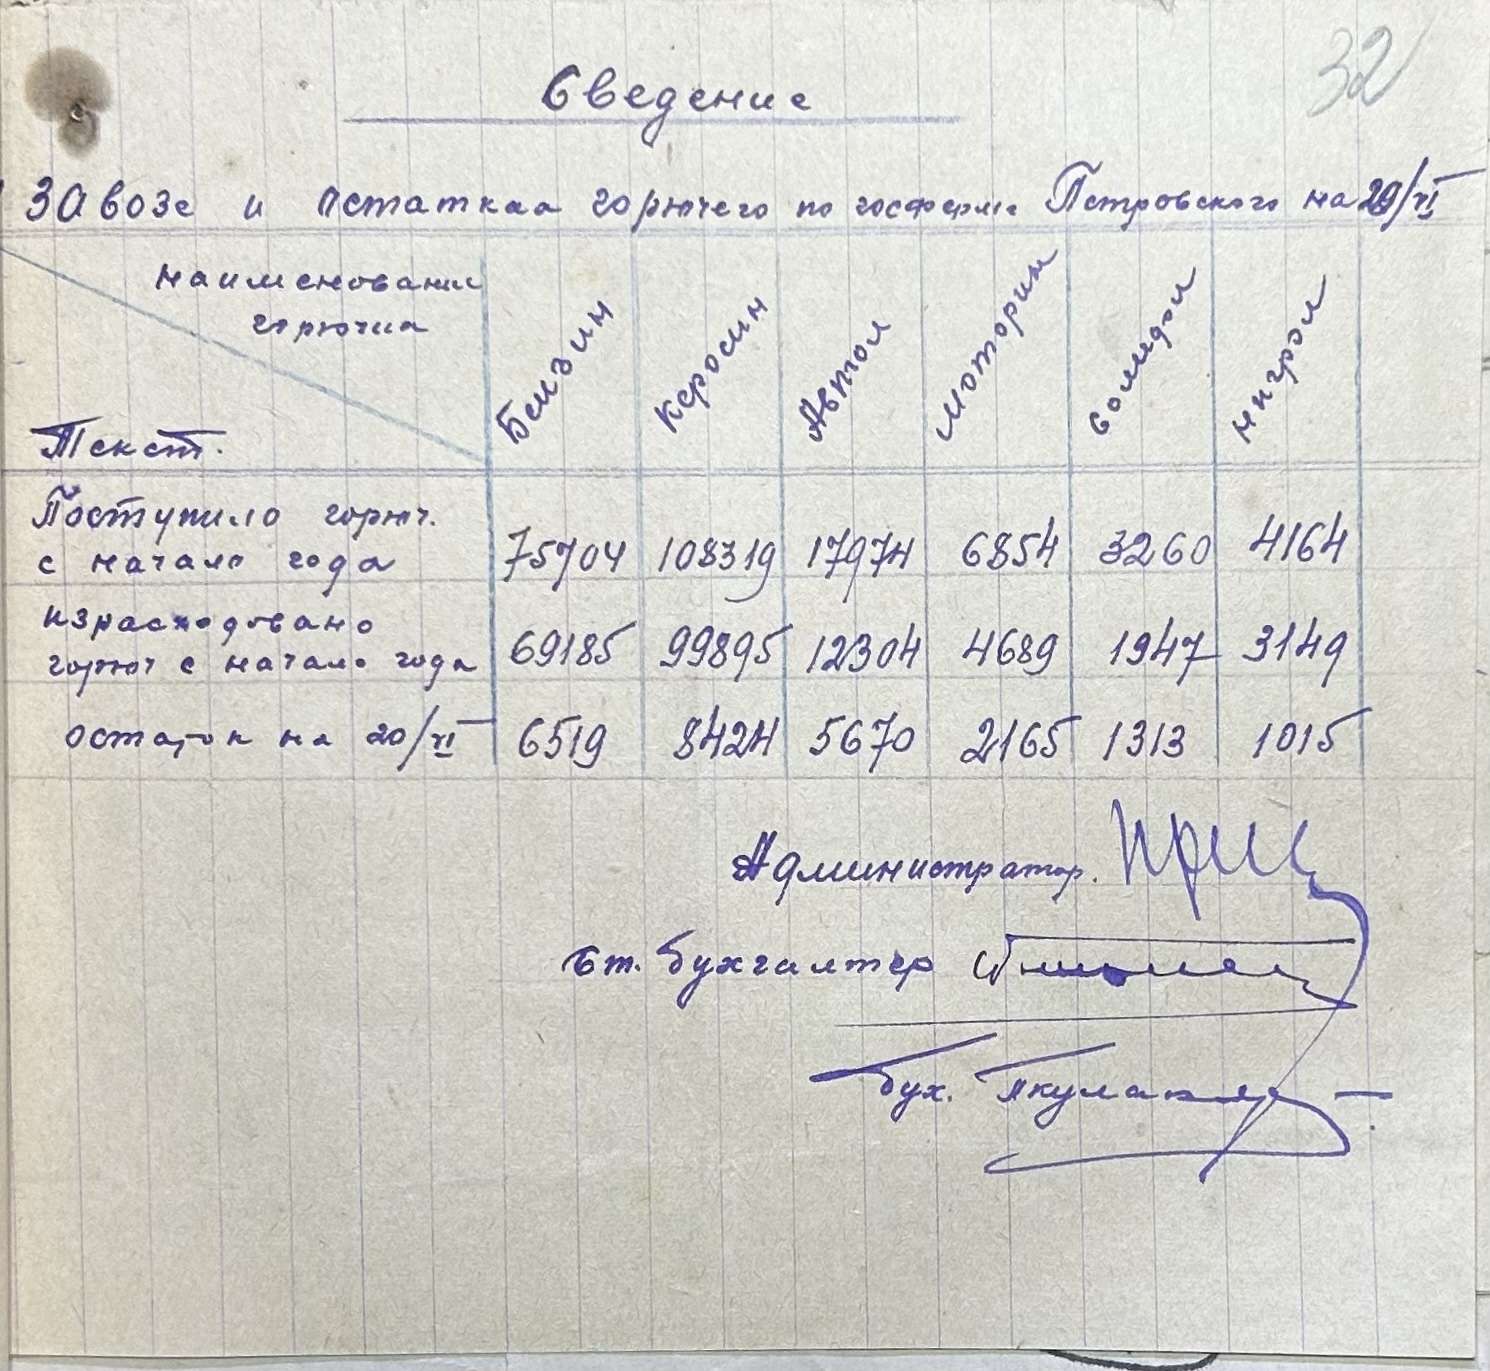 32
Сведение
завозе и остатках горючего по госферме Петровского на 20/VI
наименования
горючих
Бензин Керосин Автол Моторин Солидол Нигрол
Текст.
Поступило горюч.
с начало года 75704 108319 17974 6854 3260 4164
израсходовано
горюч с начало года 69185 99895 12304 4689 1947 3149
остаток на 20/VI 6519 8424 5670 2165 1313 1015
Администратор.
Ст. бухгалтер
Бух.